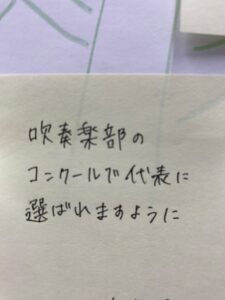 吹奏楽部の
コンクールで代表に
選ばれますように